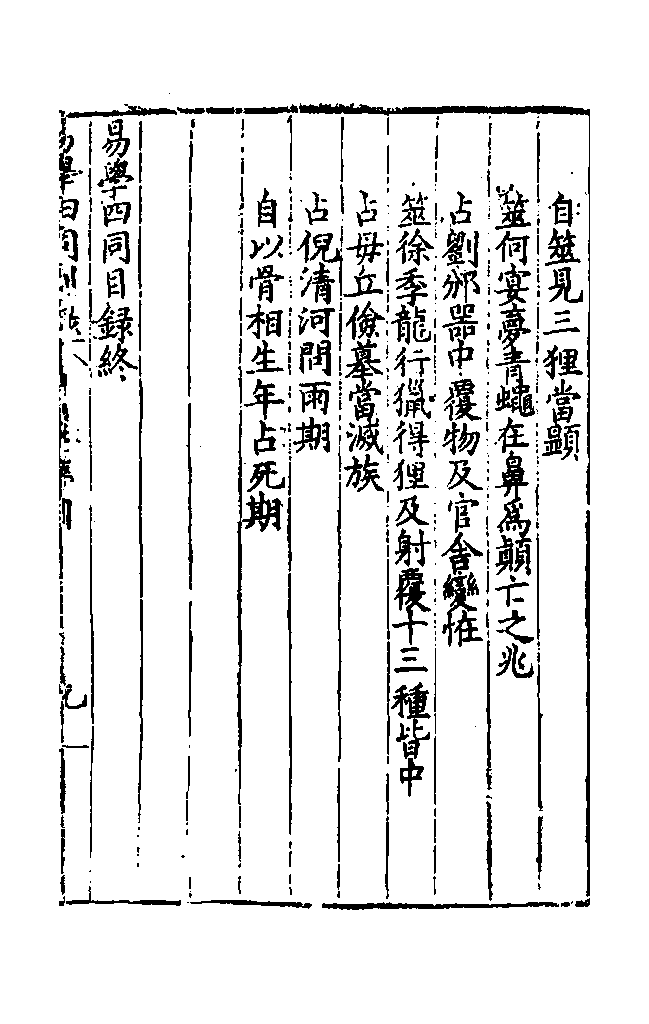 自筮見三狸當顯
筮何宴夢青蠅在鼻爲顛亡之兆
占劉邠器中覆物及官舍變怪
筮徐季龍行獵得狸及射覆十三種皆中
占毋丘儉墓當滅族
占倪清河問雨期
自以骨相生年占死期
易學四同目錄終
易學四同別錄